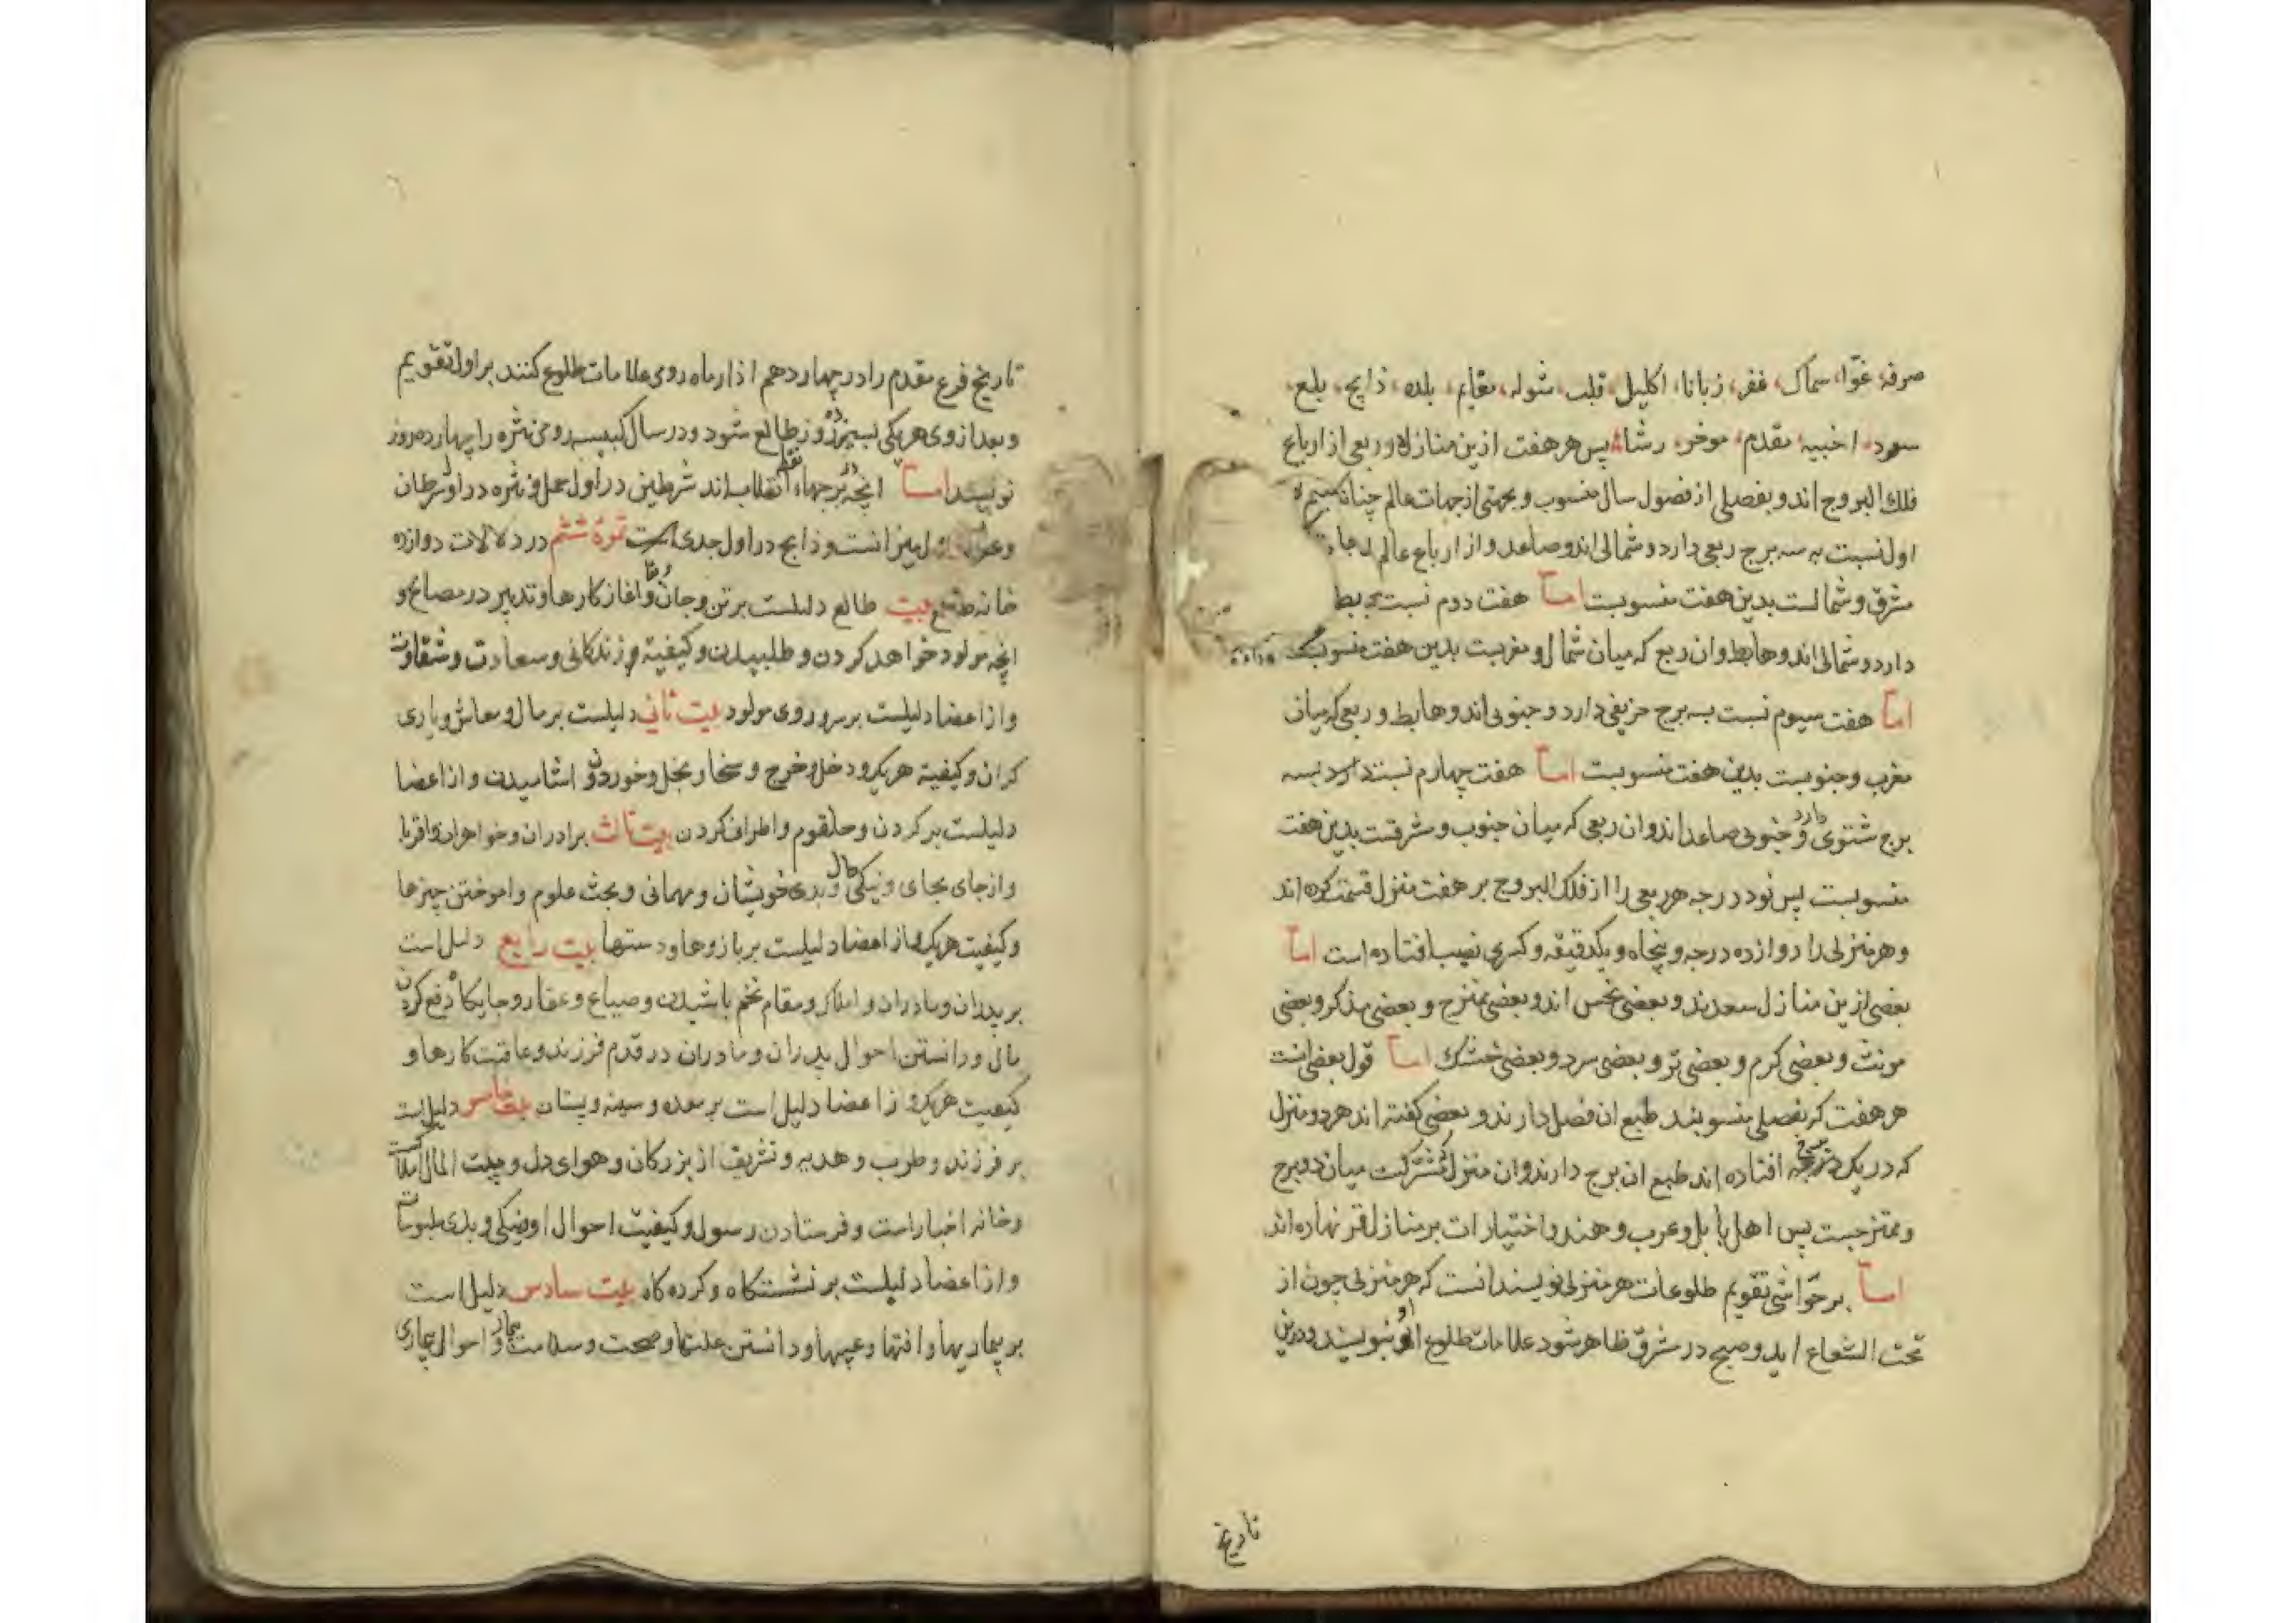 صرفه، عوّا، سماک، غفر، زبانا، اکلیل، قلب، شوله، نعایم، بلده، ذابح، بلع،
سعود، اخبیه، مقدم، موخر، رشا، پس هر هفت ازین منازل در ربعی از ارباع
فلک البروج اند و بفصلی از فصول سال منسوب و بجهتی از جهات عالم چنانکه
اول نسبت به سه برج ربعی دارد و شمالی اند و صاعد و از ارباع عالم
شرق و شمالست بدین هفت منسوبست امّا هفت دوم نسبت
دارد و شمالی اند و هابط و ان ربع که میان شمال و مغربست بدین هفت منسوبست
امّا هفت سیوم نسبت بسه برج خریفی دارد و جنوبی اند و هابط و ربعی که میان
مغرب و جنوبست بدین هفت منسوبست امّا هفت چهارم نسبت دارد بسه
برج شتوی دارد و جنوبی صاعد اند و ان ربعی که میان جنوب و شرقست بدین هفت
منسوبست پس نود درجه هر ربعی را از فلک البروج بر هفت منزل قسمت کرده اند
و هر منزلی را دوازده درجه و پنجاه و یکدقیقه و کسری نصیب افتاده است امّا
بعضی ازین منازل سعدند و بعضی نحس اند و بعضی ممتزج و بعضی مذکر و بعضی
مونث و بعضی کرم و بعضی تر و بعضی سرد و بعضی خشک امّا قول بعضی انست
هر هفت که بفصلی منسوبند طبع ان فصل دارند و بعضی کفته اند هر دو منزل
که در یک برج افتاده اند طبع ان برج دارند و ان منزل مشترکست میان دو برج
و ممتزجست پس اهل بابل و عرب و هند و اختیارات بر منازل قمر نهاده اند
امّا بر حواشی تقویم طلوعات هر منزلی نویسند انست که هر منزلی چون از
تحت الشعاع اید و صبح در مشرق ظاهر شود علامات طلوع او بنویسند و درین
تاریخ
تاریخ فرع مقدم را در چهاردهم اذار ماه رومی علامات طلوع کنند بر اول تقویم
و بعد از وی هر یکی بسیزده روز طالع شود و در سال کبیسه رومی نثره را چهارده روز
نویسند امّا انچه بر جهاء نقط انقلاب اند شرطین در اول حمل و نثره در اول سرطان
و میزانست و ذابح در اول جدی است ثمرهٔ ششم در دلالات دوازده
خانه بیت طالع دلیلست بر تن و جان و بقا و اغاز کارها و تدبیر در مصالح و
انچه مولود خواهد کردن و طلبیدن و کیفیة و زندکانی و سعادت و شقاوت
و از اعضا دلیلست بر سر و روی مولود بیت ثانی دلیلست بر مال و معاش و یاری
کران و کیفیة هر یک و دخل و خرج و سخا و بخل و خوردن و اشامیدن و از اعضا
دلیلست بر کردن و حلقوم و اطراف کردن بیت ثالث برادران و خواهران و اقربا
و از جای بجای و نیکی حال و بدی خویشان و مهمانی و بحث علوم و اموختن چیزها
و کیفیت هر یک و از اعضا دلیلست بر بازوها و دستها بیت رابع دلیل است
بر پدران و مادران و املاک و مقام تخم پاشیدن و ضیاع و عقار و جایکاه دفع کردن
مال و دانستن احوال پدران و مادران در قدم فرزند و عاقبت کارها و
کیفیت هر یک و از اعضا دلیل است بر معده و سینه و پستان بیت خامس دلیل است
بر فرزند و طرب و هدیه و تشریف از بزرکان و هوای دل و بیت المال املاک
و خانه اخبار است و فرستادن رسول و کیفیت احوال او نیکی و بدی ملبوسات
و از اعضا دلیلست بر نشستکاه و کرده کاه بیت سادس دلیل است
بر بیماریها و افتها و عیبها و دانستن علتها و صحت و سلامت بیمار و احوال بیماری